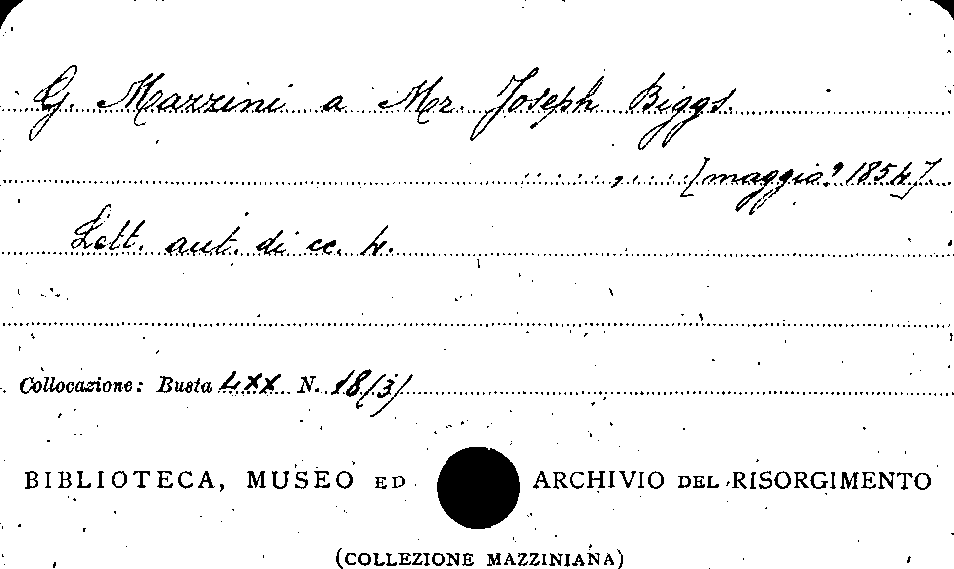 G. Mazzini a Mr. Joseph Biggs.
......,....[maggio? 1854].
Lett. aut. di cc. 4.
Collocazione: Busta LXX N. 18/3/
BIBLIOTECA, MUSEO ED ARCHIVIO DEL RISORGIMENTO
(COLLEZIONE MAZZINIANA)